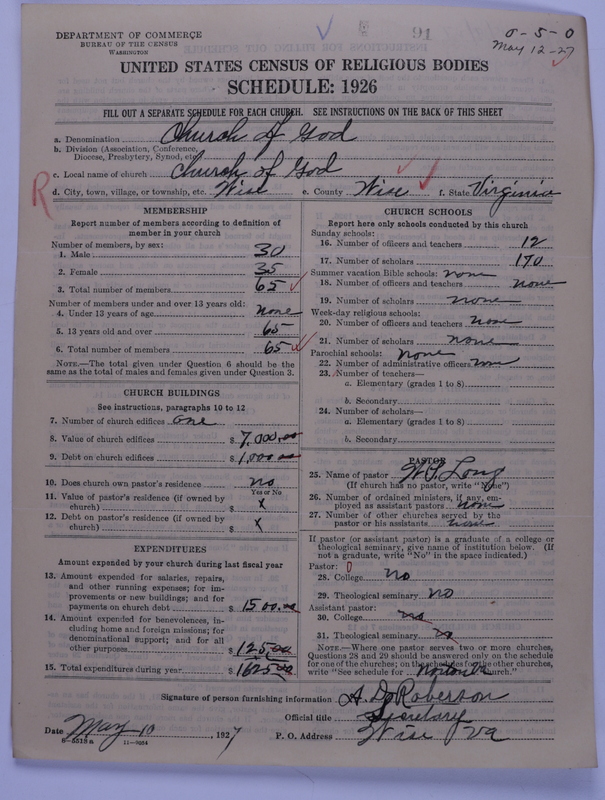 DEPARTMENT OF COMMERCE
BUREAU OF THE CENSUS
WASHINGTON
91
0-5-0
May 12-27
UNITED STATES CENSUS OF RELIGIOUS BODIES
SCHEDULE: 1926
FILL OUT A SEPARATE SCHEDULE FOR EACH CHURCH. SEE INSTRUCTIONS ON THE BACK OF THIS SHEET
a. Denomination Church of God
b. Division (Association, Conference, Diocese, Presbytery, Synod, etc.)
c. Local name of church Church of God
R d. City, town, village, or township, etc. Wise e. County Wise f. State Virginia
MEMBERSHIP
Report number of members according to definition of member in your church
Number of members, by sex:
1. Male 30
2. Female 35
3. Total number of members 65
Number of members under and over 13 years old:
4. Under 13 years of age none
5. 13 years old and over 65
6. Total number of members 65
NOTE.—The total given under Question 6 should be the same as the total of males and females given under Question 3.
CHURCH BUILDINGS
See instructions, paragraphs 10 to 12
7. Number of church edifices one
8. Value of church edifices $ 7,000.00
9. Debt on church edifices $ 1,000.00
10. Does church own pastor's residence no
Yes or No
11. Value of pastor's residence (if owned by church) $ x
12. Debt on pastor's residence (if owned by church) $ x
EXPENDITURES
Amount expended by your church during last fiscal year
13. Amount expended for salaries, repairs, and other running expenses; for improvements or new buildings; and for payments on church debt $ 1500.00
14. Amount expended for benevolences, including home and foreign missions; for denominational support; and for all other purposes $ 125.00
15. Total expenditures during year $ 1625.00
CHURCH SCHOOLS
Report here only schools conducted by this church
Sunday schools:
16. Number of officers and teachers 12
17. Number of scholars 170
Summer vacation Bible schools: none
18. Number of officers and teachers none
19. Number of scholars none
Week-day religious schools:
20. Number of officers and teachers none
21. Number of scholars none
Parochial schools: none
22. Number of administrative officers none
23. Number of teachers—
a. Elementary (grades 1 to 8)
b. Secondary
24. Number of scholars—
a. Elementary (grades 1 to 8)
b. Secondary
PASTOR
25. Name of pastor W. S. Long
(If church has no pastor, write "None")
26. Number of ordained ministers, if any, employed as assistant pastors none
27. Number of other churches served by the pastor or his assistants none
If pastor (or assistant pastor) is a graduate of a college or theological seminary, give name of institution below. (If not a graduate, write "No" in the space indicated.)
Pastor: 0
28. College no
29. Theological seminary no
Assistant pastor:
30. College no
31. Theological seminary no
NOTE.—Where one pastor serves two or more churches, Questions 28 and 29 should be answered only on the schedule for one of the churches; on the schedules for the other churches, write "See schedule for church."
Signature of person furnishing information A. D. Roberson
Official title Secretary
Date May 10, 1927 P. O. Address Wise Va
8-5513a 11-9054